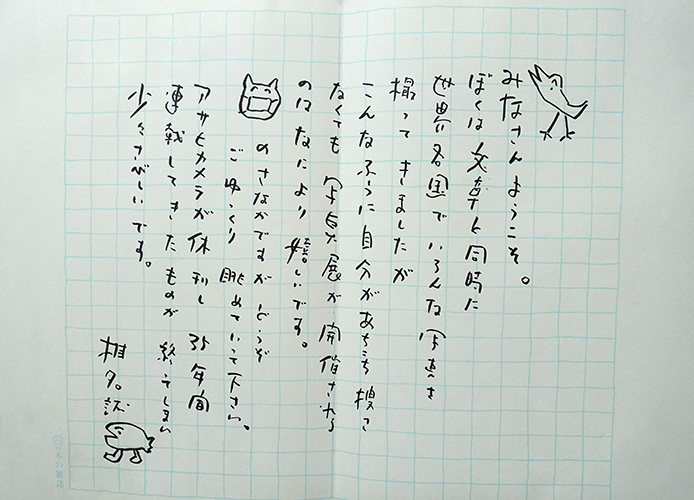 みなさんようこそ。
ぼくは文章と同時に
世界各国でいろんな写真を
撮ってきましたが
こんなふうに自分があちこち捜さ
なくても写真展が開催される
のはなにより嬉しいです。
のさなかですがどうぞ
ごゆっくり眺めていって下さい。
アサヒカメラが休刊し35年間
連載してきたものが終ってしまい
少々さびしいです。
椎名誠